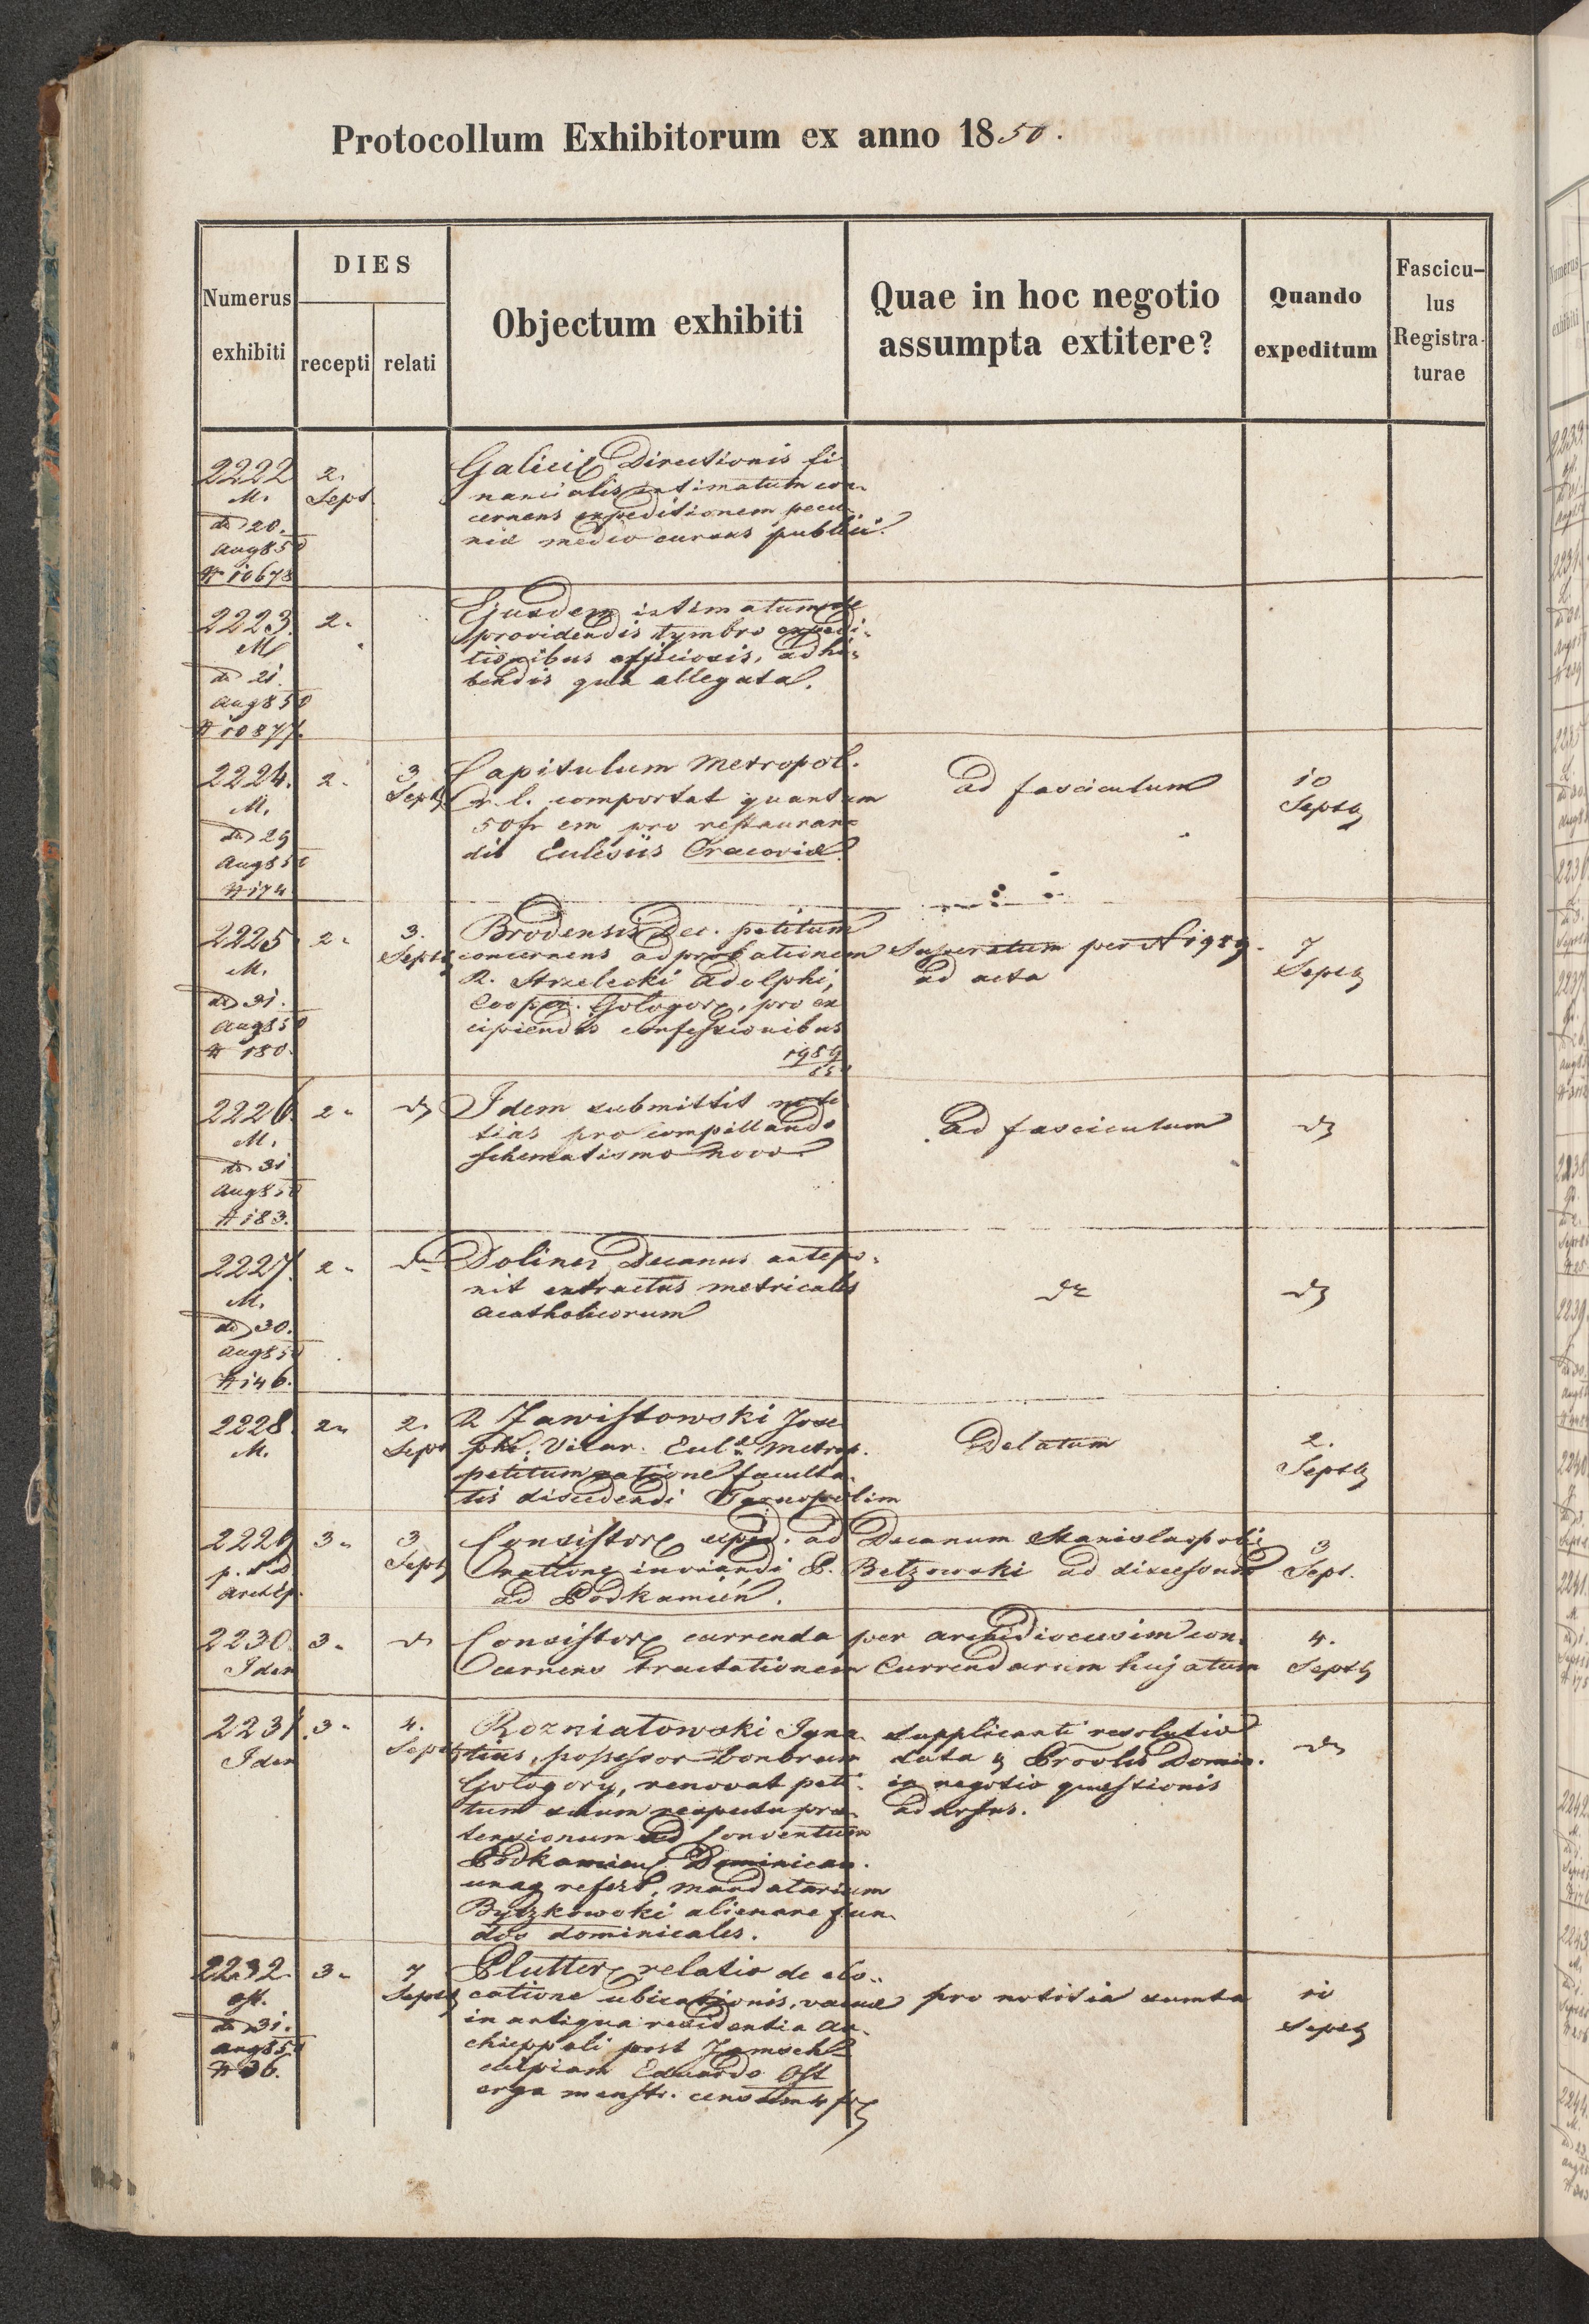 Protocollum Exhibitorum ex anno 1850.
Numerus exhibiti
DIES
recepti
relati
Objectum exhibiti
Quae in hoc negotio assumpta extitere?
Quando expeditum
Fascicu-
lus
Registra-
turae
2222 2.
M. Sept.
dd 20.
Aug 850
N 10678
Galicix Directionis fi-
nancialis intimatum con-
cernens expeditionem pecu-
niæ medio cursus publici.
2223. 2.
M
dd 21.
Aug 850
N 10877.
Ejusdem intimatum de
providendis tymbro expedi-
tionibus officiosis, adhi-
bendis qua allegata.
2224. 2. 3 Septb
M.
dd 29
Aug 850
N 174.
Capitulum Metropol.
r. l. comportat quantum
50 fr cm pro restauran-
dis Ecclesiis Cracoviæ.
ad fasciculum
10
Septb
2225 2. 3. Septb
M.
dd 31.
Aug 850
N 180.
Brodensis Dec. petitum
concernens adprobationem
R. Strzelecki Adolphi,
Cooper. Gologor, pro ex
cipiendis confessionibus
1959
850
Superatum per N 1959.
ad acta
7
Septb
2226 2. do
M.
dd 31
Aug 850
N 183.
Idem submittit noti
tias pro compillando
schematismo novo
ad fasciculum
do
2227. 2. do
M.
dd 30.
Aug 850
N 146.
Doliner Decanus antepo-
nit extractus metricales
acatholicorum
do
do
2228. 2. 2. Sept
M.
R Zawistowski Jose
phi, Vicar. Eccl. Metrop.
petitum ratione faculta-
tis discedendi Tarnopolim
Delatum
2.
Septb
2229 3. 3 Septb
Archiep.
Consistor exped. ad Decanum Stanislaopoli
ratione inviandi P. Betzowski ad discessum
ad Podkamień.
3
Sept.
2230. 3. do
Idem
Consistor currenda per archidiocesim con-
cernens tractationem Currendarum hujatum
4.
Septb
2231. 3. 4. Septb
Idem
Rozniatowski Igna-
tius, possessor bonorum
Gologory, renovat peti-
tum suum respectu præ-
tensionum ad Conventum
Podkamien. Dominican.
unaq refert, mandatarium
Bytzkowski alienare fun-
dos dominicales.
Supplicanti resolutio
data & Provlis Domin.
in negotio quæstionis
do
2232. 3. 7 Septb
dd 31.
Aug 850
N 36.
Plutter relatio de elo-
catione ubicationis, vacuæ
in antiqua residentia Ar-
chieppali post
Eduardo Ost
erga menstr. censum 4 fr
pro notitia sumta
10
Septb